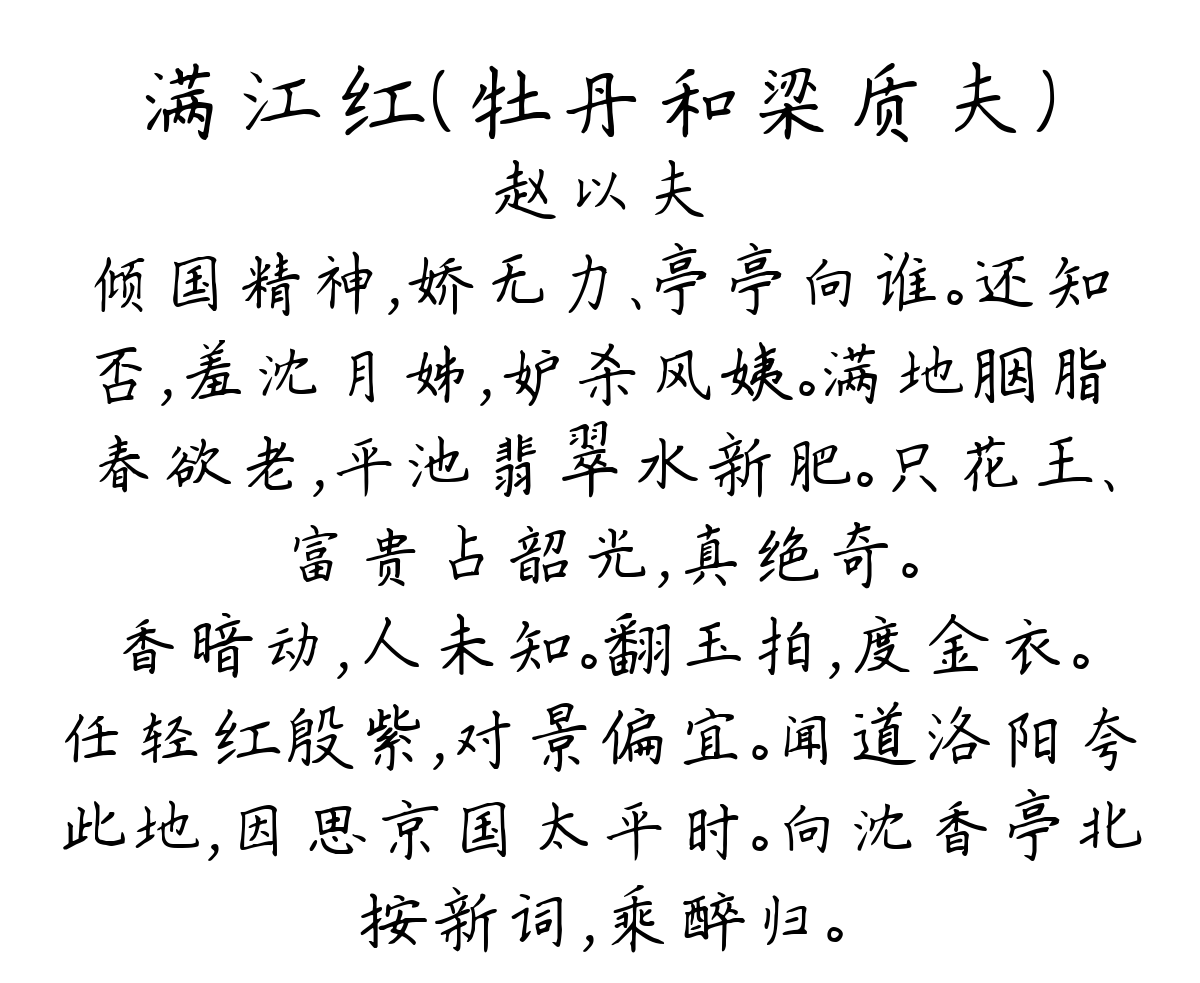 满江红(牡丹和梁质夫)
赵以夫
倾国精神,娇无力、亭亭向谁。还知
否,羞沈月姊,妒杀风姨。满地胭脂
春欲老,平池翡翠水新肥。只花王、
富贵占韶光,真绝奇。
香暗动,人未知。翻玉拍,度金衣。
任轻红殷紫,对景偏宜。闻道洛阳夸
此地,因思京国太平时。向沈香亭北
按新词,乘醉归。